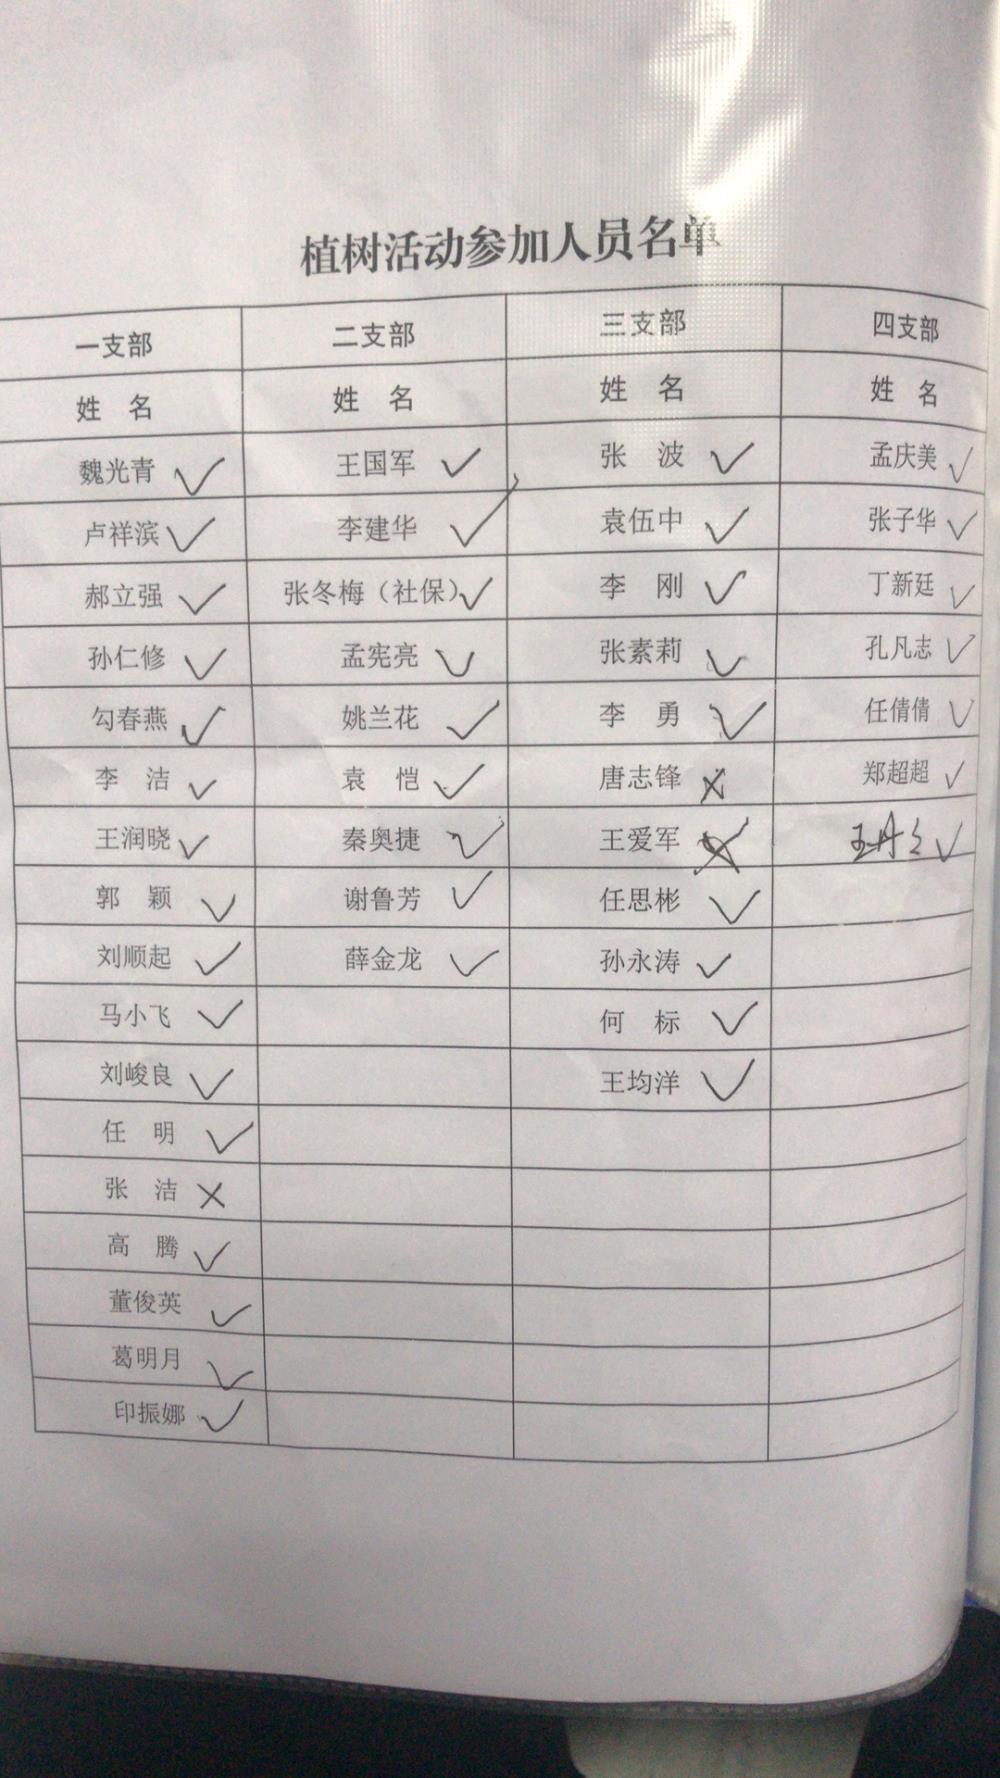 植树活动参加人员名单
一支部 二支部 三支部 四支部
姓 名 姓 名 姓 名 姓 名
魏光青 ✓ 王国军 ✓ 张 波 ✓ 孟庆美 ✓
卢祥滨 ✓ 李建华 ✓ 袁伍中 ✓ 张子华 ✓
郝立强 ✓ 张冬梅（社保）✓ 李 刚 ✓ 丁新廷 ✓
孙仁修 ✓ 孟宪亮 ✓ 张素莉 ✓ 孔凡志 ✓
勾春燕 ✓ 姚兰花 ✓ 李 勇 ✓ 任倩倩 ✓
李 洁 ✓ 袁 恺 ✓ 唐志锋 ✗ 郑超超 ✓
王润晓 ✓ 秦奥捷 ✓ 王爱军 ✗ 王丹 ✓
郭 颖 ✓ 谢鲁芳 ✓ 任思彬 ✓
刘顺起 ✓ 薛金龙 ✓ 孙永涛 ✓
马小飞 ✓ 何 标 ✓
刘峻良 ✓ 王均洋 ✓
任 明 ✓
张 洁 ✗
高 腾 ✓
董俊英 ✓
葛明月 ✓
印振娜 ✓